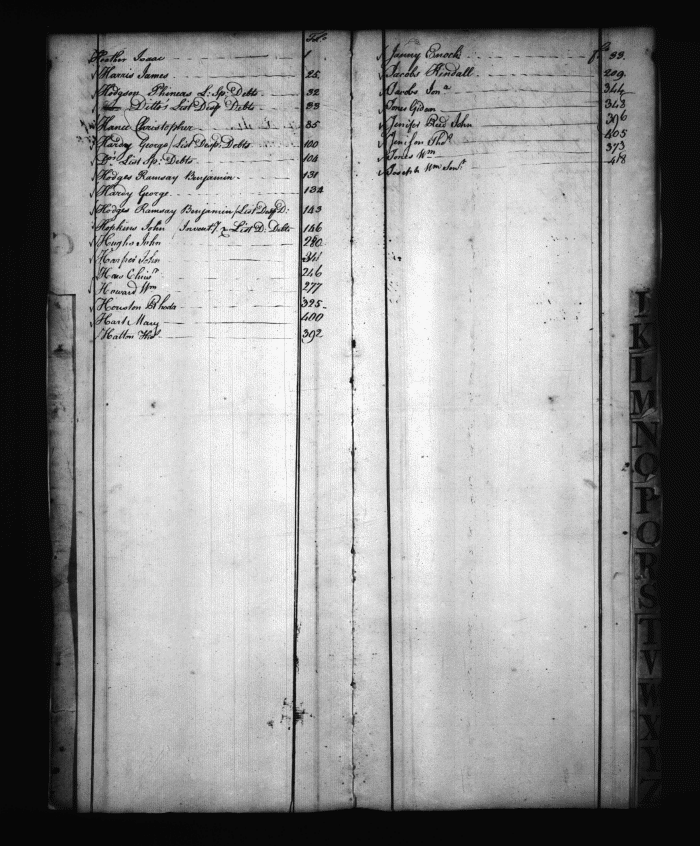 Fol.o
Heather Isaac 1
Harris James 25
Hodgson Phineas L: Sp: Debts 32
Ditto's List Desp Debts 33
Hanee Christopher 85
Hardy George / List Desp: Debts 100
Do. List Sp: Debts 104
Hodges Ramsay Benjamin 131
Hardy George 134
Hodges Ramsay Benjamin / List Desp D: 143
Hopkins John Invent.y & List D: Debts 146
Hughs John 280
Harper John 341
246
Howard Wm 277
Houston Rhoda 325
Hart Mary 400
Halton 392
Janny Enock fo. 33
Jacobs Rindall 209
Jacobs Jon.a 344
Jones Gideon 343
Jenifer Reed John 396
Jenifer 405
Jones Wm 373
Wm 418
J
K
L
M
N
O
P
Q
R
S
T
V
W
X
Y
Z